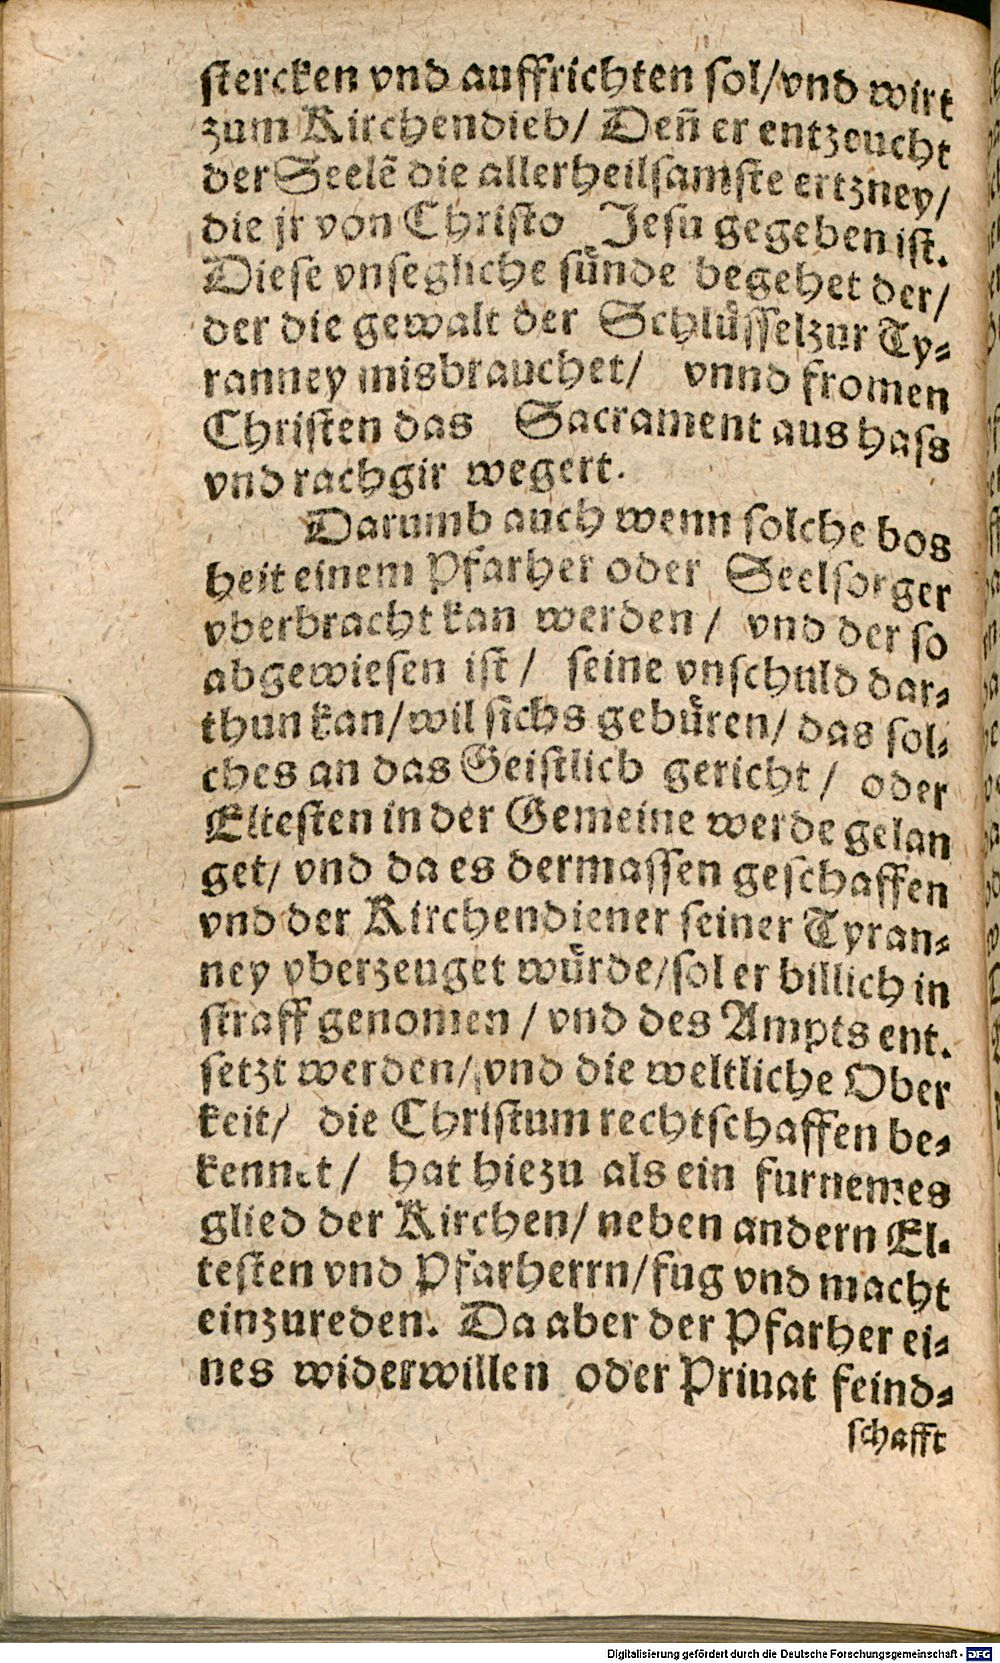 stercken vnd auffrichten sol/vnd wirt
zum Kirchendieb/ Deñ er entzeucht
der Seelẽ die allerheilsamste ertzney/
die jr von Christo Jesu gegeben ist.
Diese vnsegliche suͤnde begehet der/
der die gewalt der Schluͤsselzur Ty⸗
ranney misbrauchet/ vnnd fromen
Christen das Sacrament aus hass
vnd rachgir wegert.
Darumb auch wenn solche bos
heit einem Pfarher oder Seelsorger
vberbracht kan werden/ vnd der so
abgewiesen ist/ seine vnschuld dar⸗
thun kan/wil sichs gebuͤren/ das sol⸗
ches an das Geistlich gericht/ oder
Eltesten in der Gemeine werde gelan
get/ vnd da es dermassen geschaffen
vnd der Kirchendiener seiner Tyran⸗
ney vberzeuget wuͤrde/sol er billich in
straff genomen/vnd des Ampts ent.
setzt werden/ vnd die weltliche Ober
keit/ die Christum rechtschaffen be⸗
kennet/ hat hiezu als ein furnemes
glied der Kirchen/ neben andern El.
testen vnd Pfarherrn/fug vnd macht
einzureden. Da aber der Pfarher ei⸗
nes widerwillen oder Priuat feind⸗
schafft
Digitalisierung gefördert durch die Deutsche Forschungsgemeinschaft - DFG